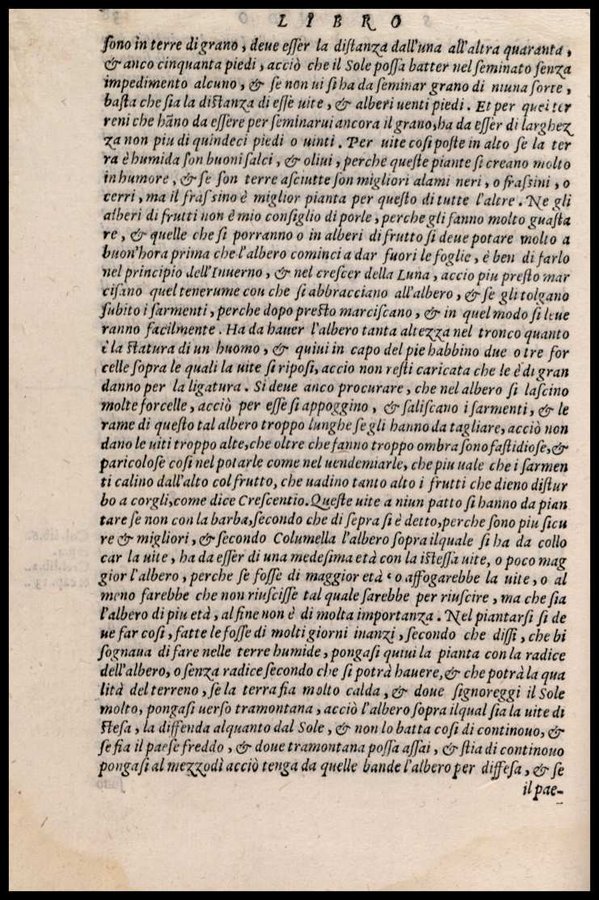 LIBRO
sono in terre di grano, deue esser la distanza dall'una all'altra quaranta,
& anco cinquanta piedi, acciò che il Sole possa batter nel seminato senza
impedimento alcuno, & se non ui si ha da seminar grano di niuna sorte,
basta che sia la distanza di esse uite, & alberi uenti piedi. Et per quei ter
reni che hãno da essere per seminarui ancora il grano, ha da esser di larghez
za non piu di quindeci piedi o uinti. Per uite cosi poste in alto se la ter
ra è humida son buoni salci, & oliui, perche queste piante si creano molto
in humore, & se son terre asciutte son migliori alami neri, o frassini, o
cerri, ma il frassino è miglior pianta per questo di tutte l'altre. Ne gli
alberi di frutti non è mio consiglio di porle, perche gli fanno molto guasta
re, & quelle che si porranno o in alberi di frutto si deue potare molto a
buon'hora prima che l'albero cominci a dar fuori le foglie, è ben di farlo
nel principio dell'Inuerno, & nel crescer della Luna, accio piu presto mar
cisano quel tenerume con che si abbracciano all'albero, & se gli tolgano
subito i sarmenti, perche dopo presto marciscano, & in quel modo si leue
ranno facilmente. Ha da hauer l'albero tanta altezza nel tronco quanto
è la statura di un huomo, & quiui in capo del pie habbino due o tre for
celle sopra le quali la uite si riposi, accio non resti caricata che le è di gran
danno per la ligatura. Si deue anco procurare, che nel albero si lascino
molte forcelle, acciò per esse si appoggino, & saliscano i sarmenti, & le
rame di questo tal albero troppo lunghe se gli hanno da tagliare, acciò non
dano le uiti troppo alte, che oltre che fanno troppo ombra sono fastidiose, &
paricolose cosi nel potarle come nel uendemiarle, che piu uale che i sarmen
ti calino dall'alto col frutto, che uadino tanto alto i frutti che dieno distur
bo a corgli, come dice Crescentio. Queste uite a niun patto si hanno da pian
tare se non con la barba, secondo che di sepra si è detto, perche sono piu sicu
re & migliori, & secondo Columella l'albero sopra il quale si ha da collo
car la uite, ha da esser di una medesima età con la istessa uite, o poco mag
gior l'albero, perche se fosse di maggior età o affogarebbe la uite, o al
meno farebbe che non riuscisse tal quale sarebbe per riuscire, ma che sia
l'albero di piu età, al fine non è di molta importanza. Nel piantarsi si de
ue far cosi, fatte le fosse di molti giorni inanzi, secondo che dissi, che bi
sognaua di fare nelle terre humide, pongasi quiui la pianta con la radice
dell'albero, o senza radice secondo che si potrà hauere, & che potrà la qua
lità del terreno, se la terra sia molto calda, & doue signoreggi il Sole
molto, pongasi uerso tramontana, acciò l'albero sopra il qual sia la uite di
stesa, la diffenda alquanto dal Sole, & non lo batta cosi di continouo, &
se sia il paese freddo, & doue tramontana possa assai, & stia di continouo
pongasi al mezzodì acciò tenga da quelle bande l'albero per diffesa, & se
il pae-